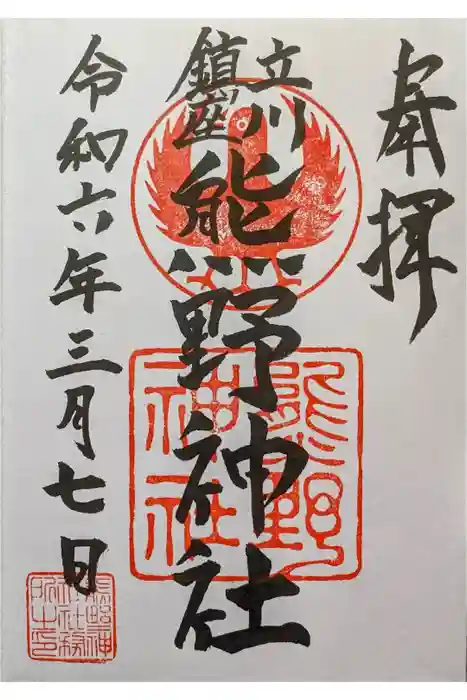 奉拝
立川
鎮座
熊野神社
令和六年三月七日
熊野
神社
熊野神
社社務
所之印